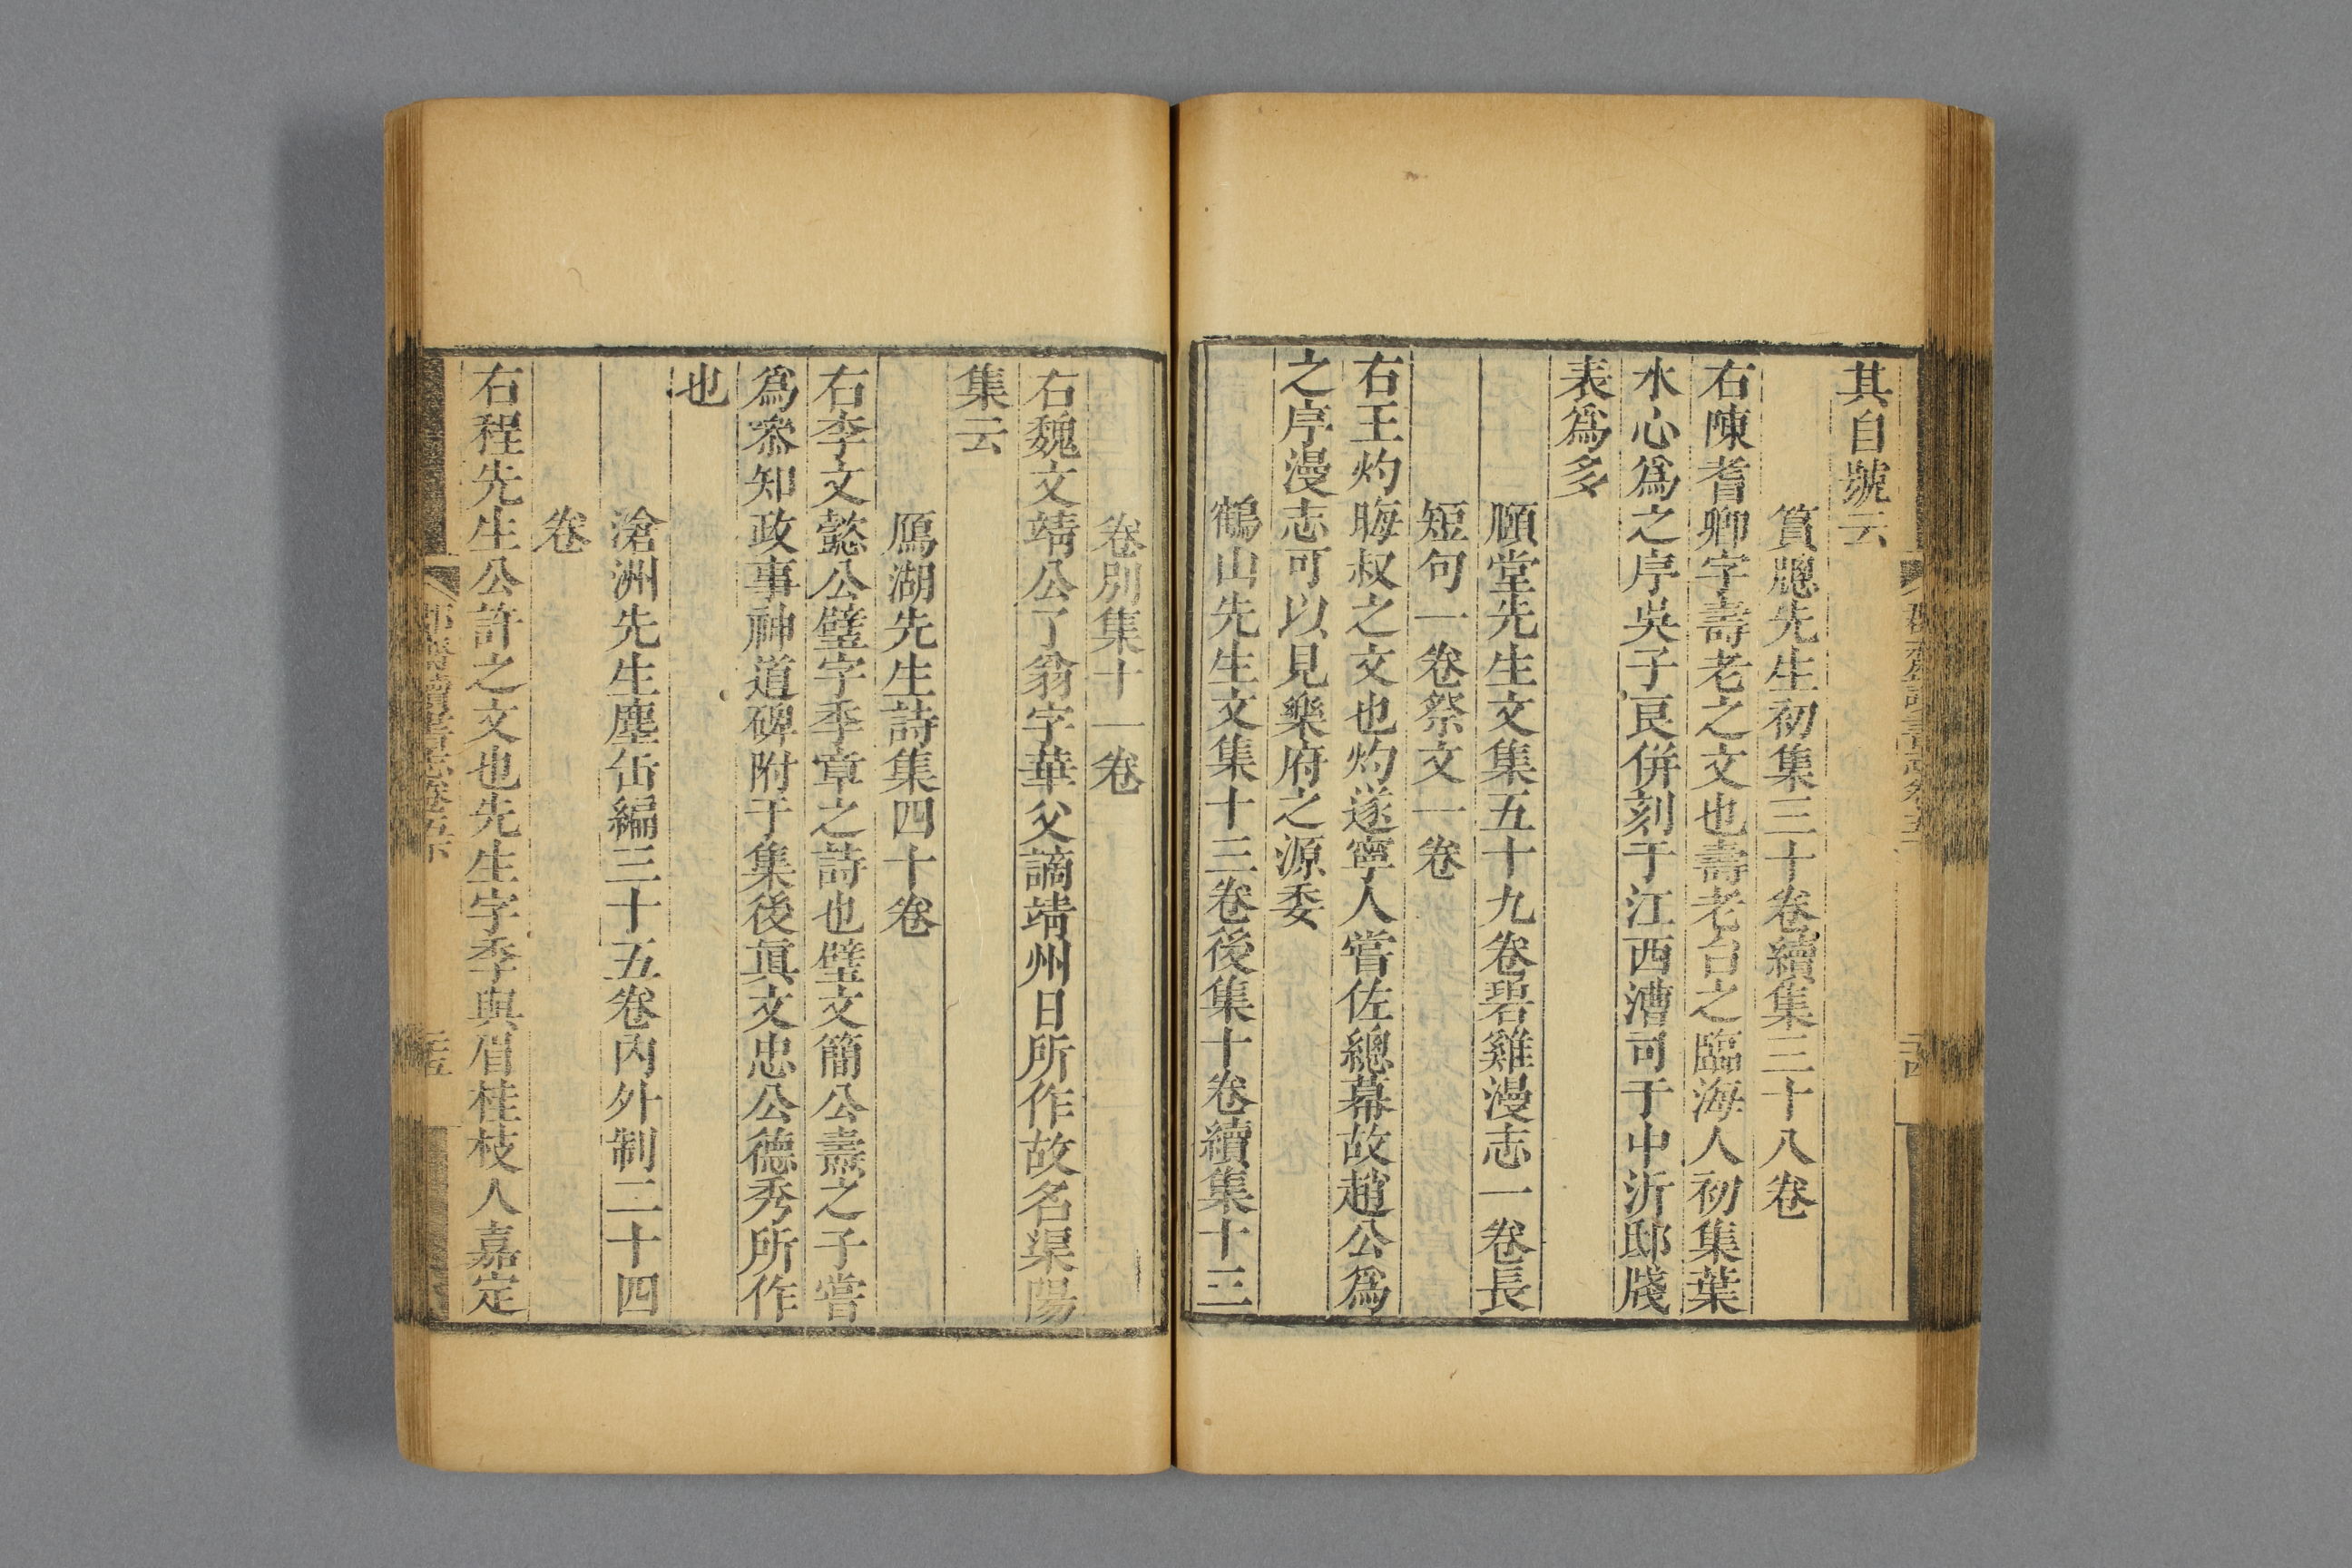 其自號云
篔牕先生初集三十卷續集三十八卷
右陳耆卿字壽老之文也壽老台之臨海人初集葉
水心爲之序吳子良併刻于江西漕司于中沂邸牋
表爲多
頤堂先生文集五十九卷碧雞漫志一卷長
短句一卷祭文一卷
右王灼晦叔之文也灼遂寧人嘗佐總幕故趙公爲
之序漫志可以見樂府之源委
鶴山先生文集十三卷後集十卷續集十三
卷別集十一卷
右魏文靖公了翁字華父謫靖州日所作故名渠陽
集云
鴈湖先生詩集四十卷
右李文懿公壁字季章之詩也壁文簡公燾之子嘗
爲叅知政事神道碑附于集後真文忠公德秀所作
也
滄洲先生塵缶編三十五卷內外制二十四
卷
右程先生公許之文也先生字季與眉桂枝人嘉定